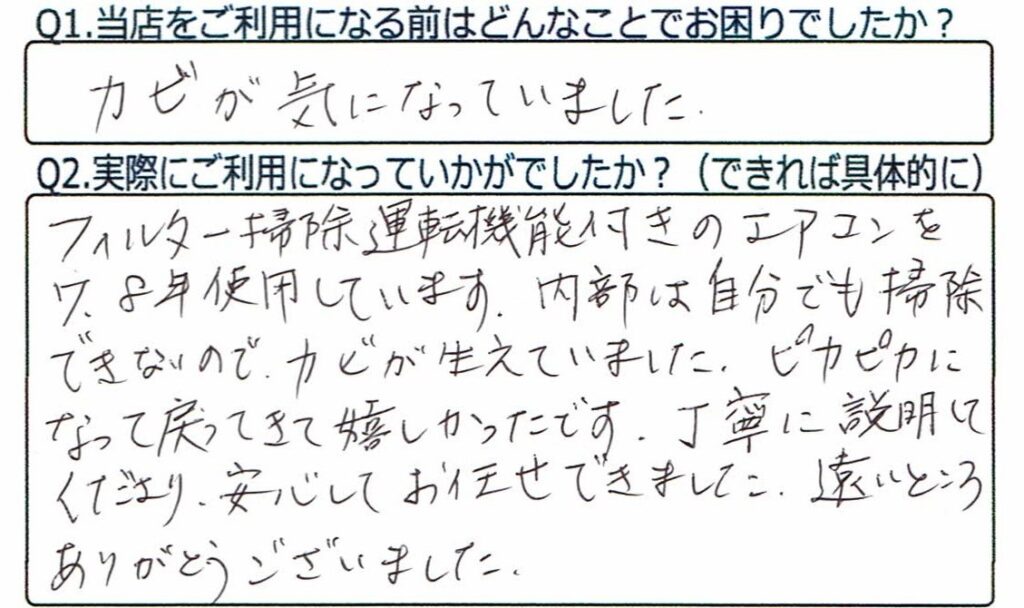 Q1.当店をご利用になる前はどんなことでお困りでしたか？
カビが気になっていました.
Q2.実際にご利用になっていかがでしたか？（できれば具体的に）
フィルター掃除運転機能付きのエアコンを
7、8年使用しています. 内部は自分でも掃除
できないので、カビが生えていました. ピカピカに
なって戻ってきて嬉しかったです. 丁寧に説明して
くださり、安心してお任せできました. 遠いところ
ありがとうございました.